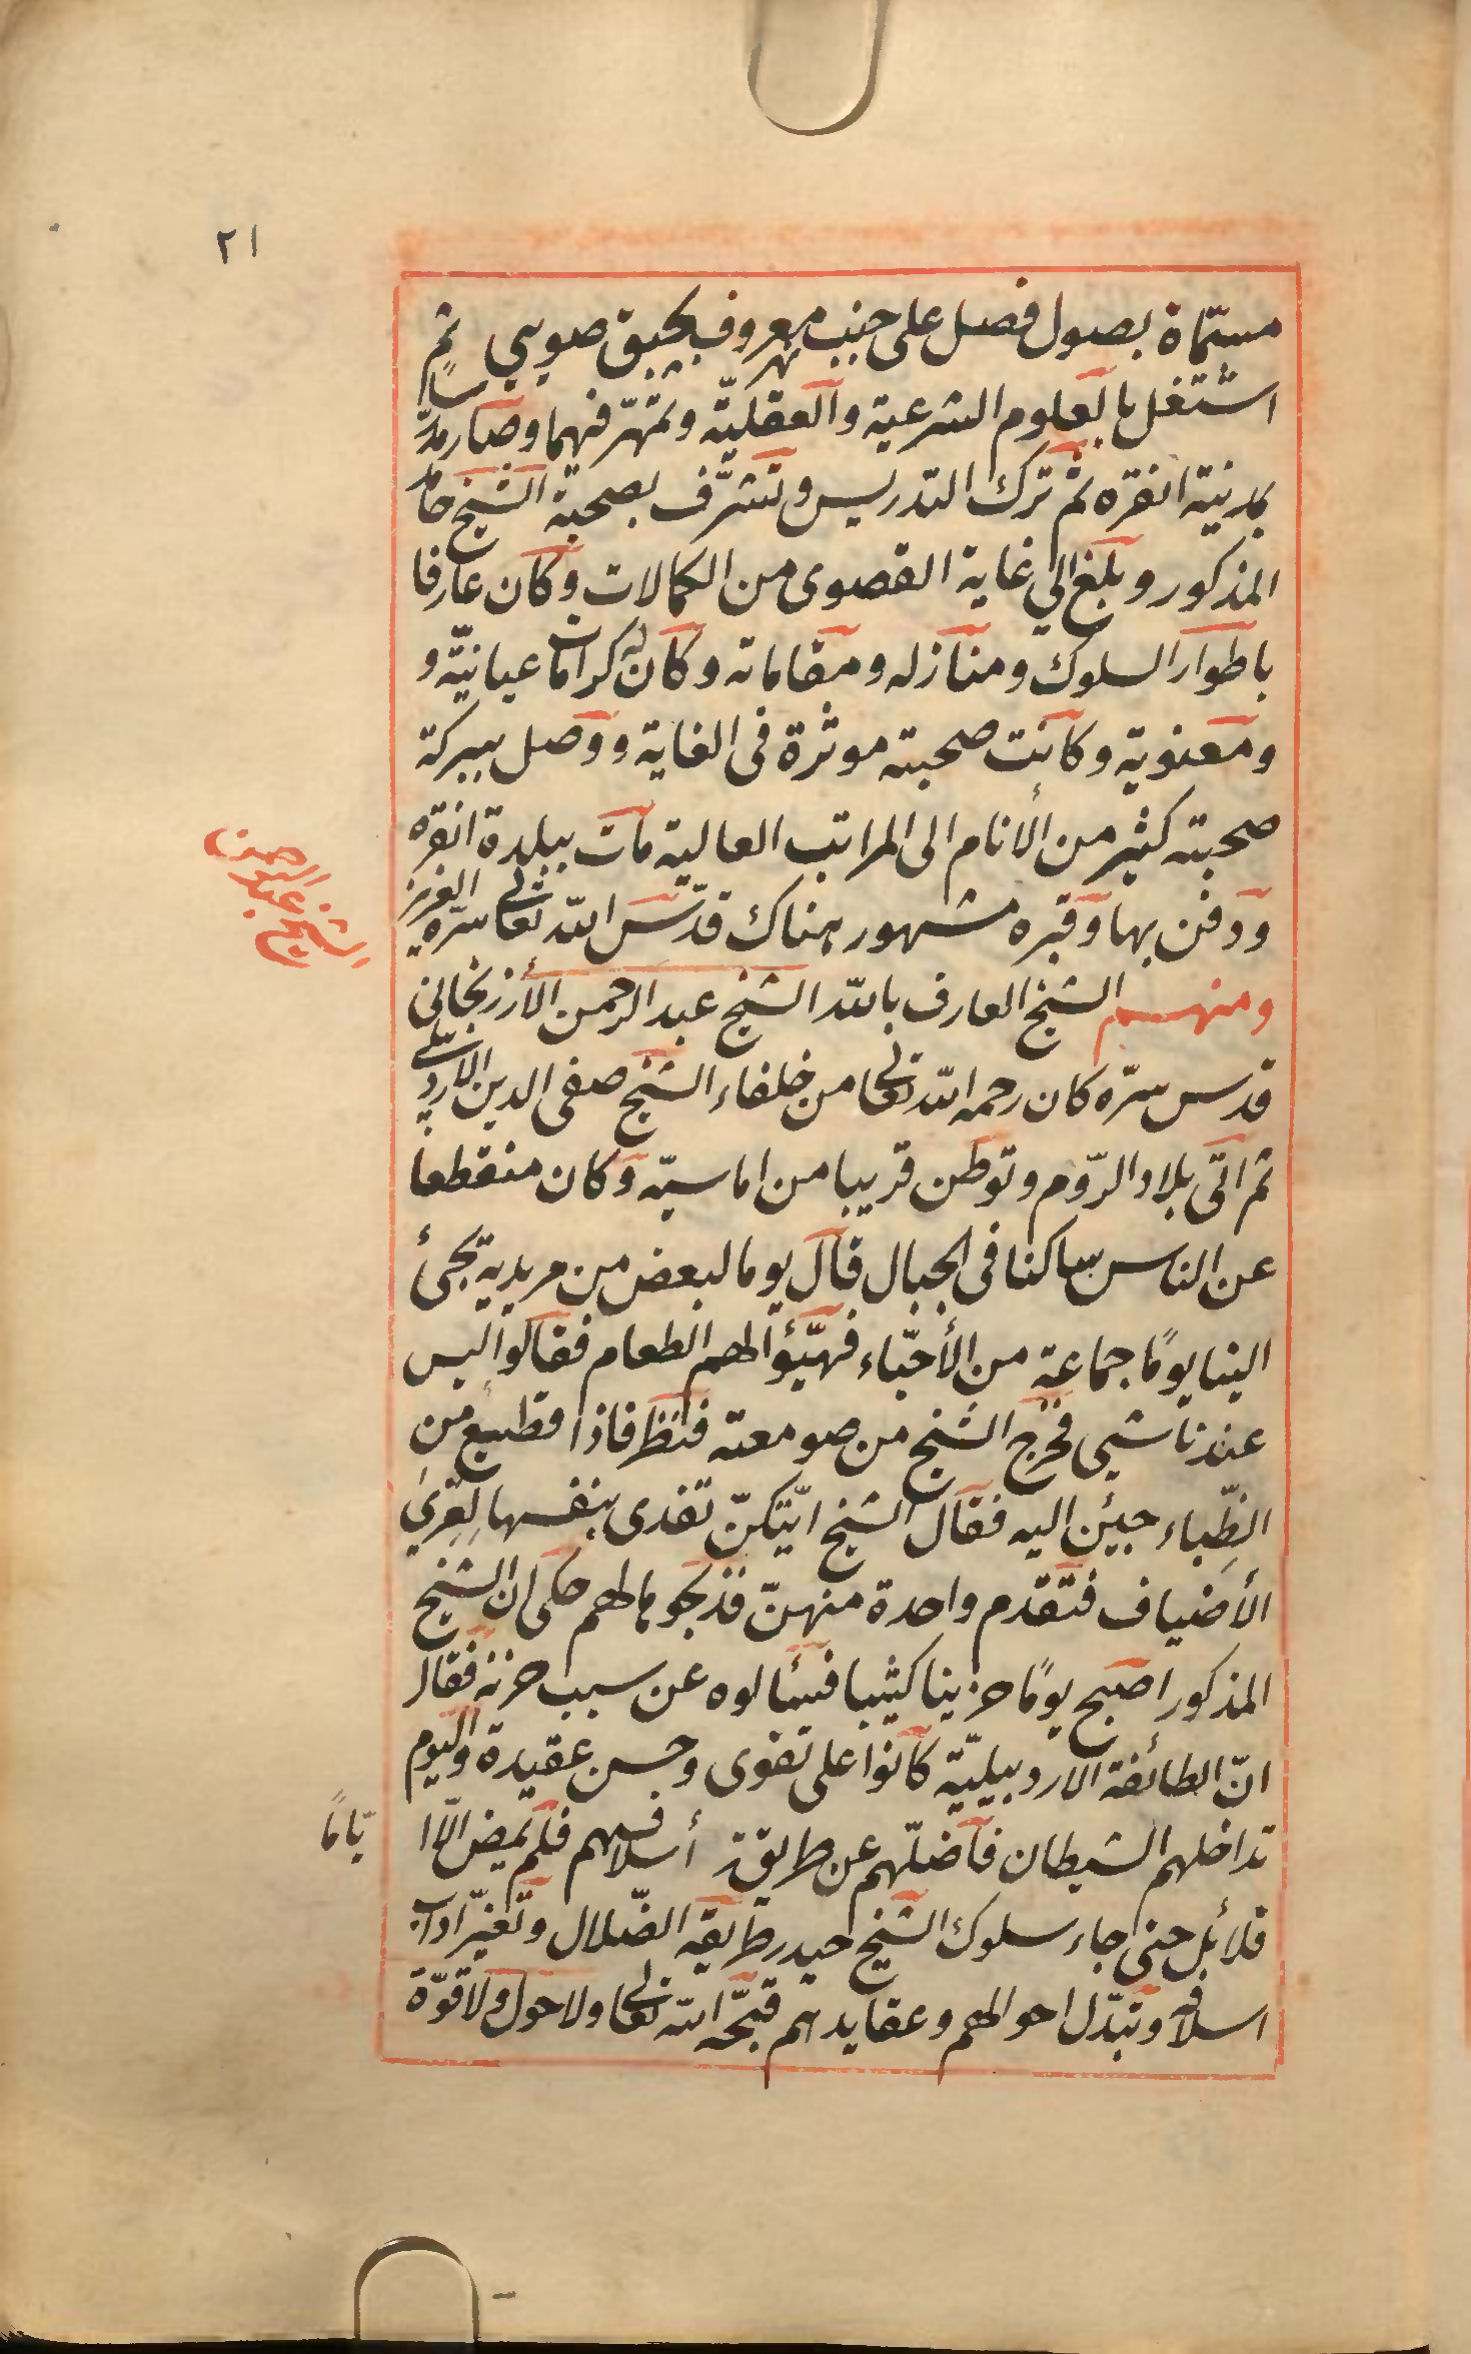 ٢١
مسمّاة بصول فصل على جنب نهر معروف بجبق صويى ثم
اشتغل بالعلوم الشرعية والعقليّة وتمهّر فيهما وصار مدرّسا
بمدينة انقره ثم ترك التدريس وتشرّف بصحبة الشيخ حامد
المذكور وبلغ الى غاية القصوى من الكمالات وكان عارفا
باطوار السلوك ومنازله ومقاماته وكان له كرامات عيانيّة و
ومعنوية وكانت صحبته موثرة فى الغاية ووصل ببركة
صحبته كثير من الأنام الى المراتب العالية مات ببلدة انقره
ودفن بها وقبره مشهور هناك قدّس الله تعالى سرّه العزيز
الشيخ عبد الرحمن
ومنهم الشيخ العارف بالله الشيخ عبد الرحمن الأرزنجانى
قدس سرّه كان رحمه الله تعالى من خلفاء الشيخ صفى الدين الاردبيلى
ثم اتى بلاد الرّوم وتوطن قريبا من اماسيّه وكان منقطعا
عن الناس ساكنا فى الجبال قال يوما لبعض من مريديه يجئ
الينا يومًا جماعة من الأحبّاء فهيّؤا لهم الطعام فقالوا ليس
عندنا شيى فخرج الشيخ من صومعته فنظر فاذا قطيع من
الظّباء جيئن اليه فقال الشيخ ايّتكنّ تفدى بنفسها لقرى
الأضياف فتقدم واحدة منهنّ فذبحوها لهم حكى ان الشيخ
المذكور اصبح يومًا حزينا كئيبا فسألوه عن سبب حزنه فقال
انّ الطائفة الاردبيليّة كانوا على تقوى وحسن عقيدة واليوم
تداخلهم الشيطان فاضلّهم عن طريقة أسلافهم فلم يمض الّا ايّامًا
قلائل حتى جاء سلوك الشيخ حيدر طريقه الضّلال وتغيّر اداب
اسلافه وتبدّل احوالهم وعقايدهم قبّحه الله تعالى ولا حول ولا قوّة